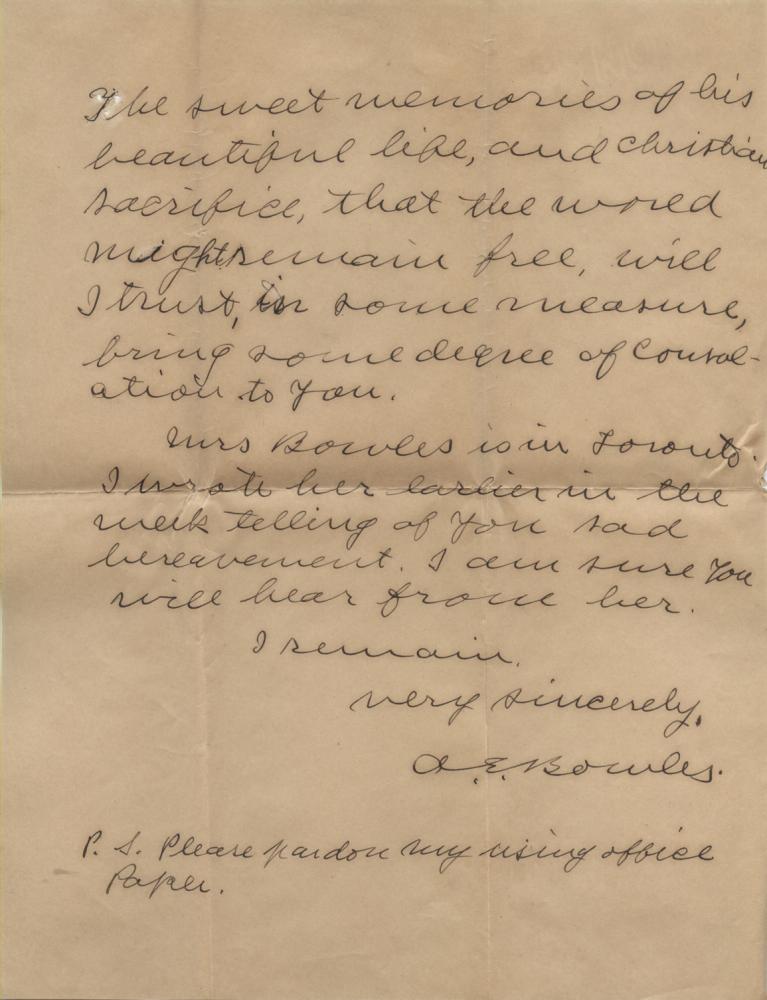 The sweet memories of his
beautiful life, and Christian
sacrifice, that the world
might remain free, will
I trust, in some measure,
bring some degree of Consol-
ation to You.
Mrs Bowles is in Toronto.
I wrote her earlier in the
week telling of You sad
bereavement. I am sure You
will hear from her.
I remain.
very sincerely,
A. E. Bowles.
P. S. Please pardon my using office
Paper.